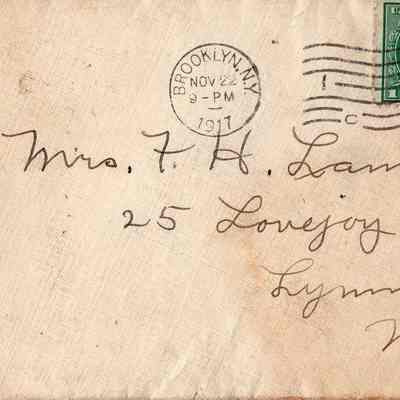 BROOKLYN, N.Y.
NOV 22
9-PM
1917
1
C
1
Mrs. F. H. Lam
25 Lovejoy
Lynn